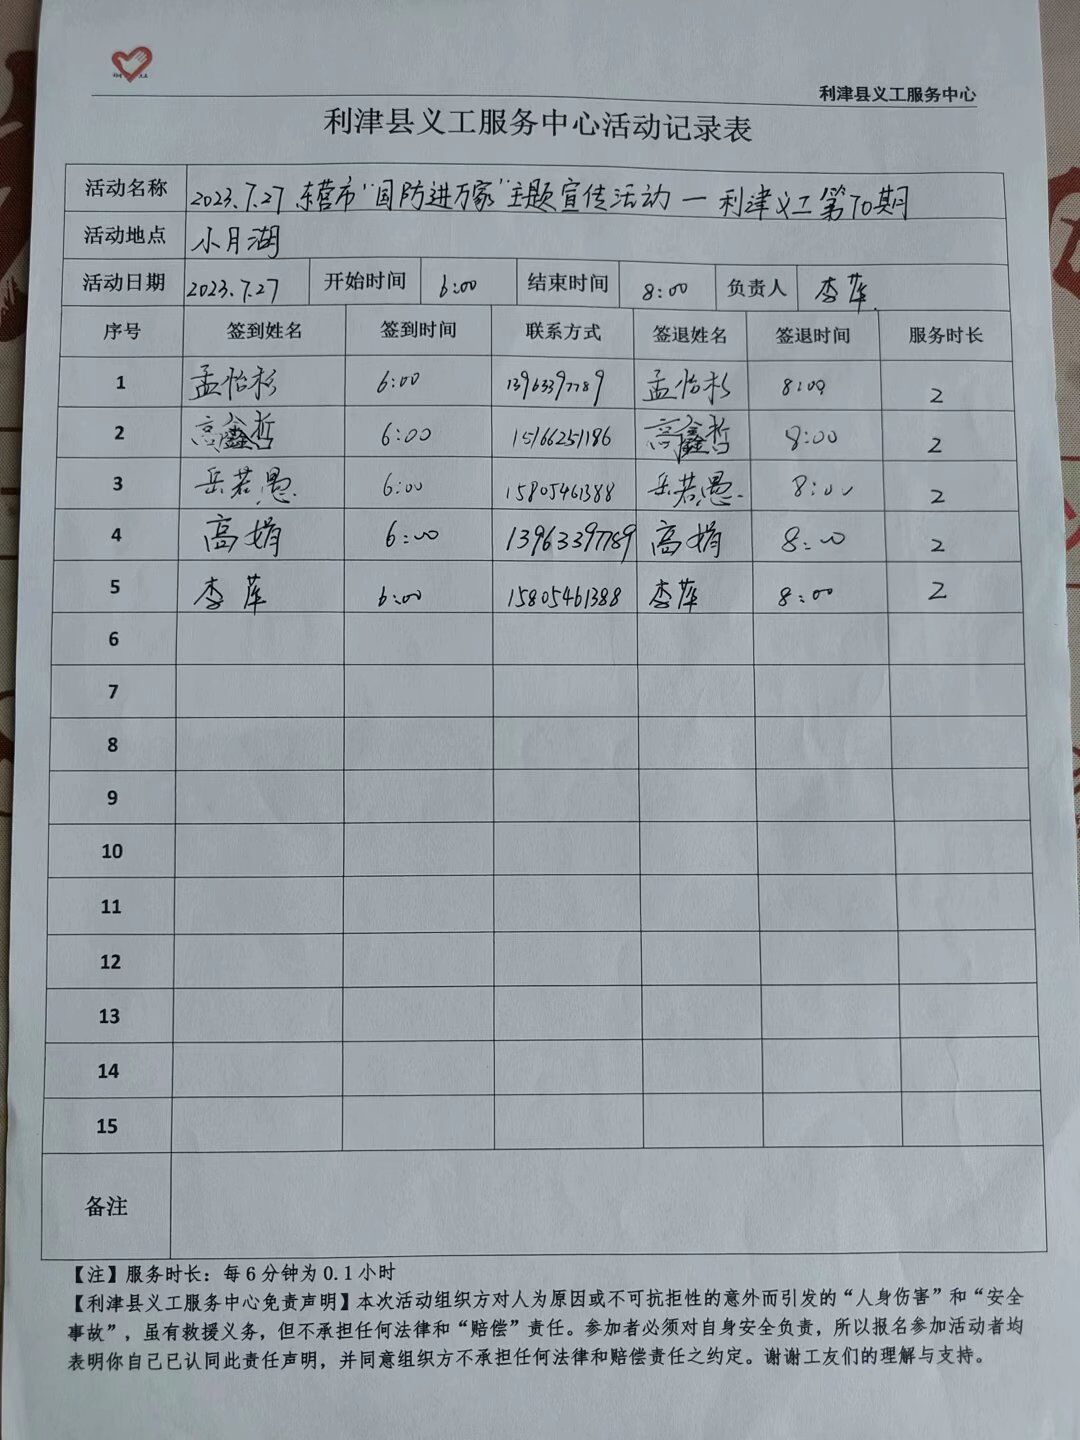 利津县义工服务中心
利津县义工服务中心活动记录表
活动名称 2023.7.27 东营市“国防进万家”主题宣传活动一利津义工第70期
活动地点 小月湖
活动日期 2023.7.27 开始时间 6:00 结束时间 8:00 负责人 李萍
序号 签到姓名 签到时间 联系方式 签退姓名 签退时间 服务时长
1 孟怡杉 6:00 13963397789 孟怡杉 8:00 2
2 高鑫哲 6:00 15166251186 高鑫哲 8:00 2
3 岳若愚. 6:00 15805461388 岳若愚. 8:00 2
4 高娟 6:00 13963397789 高娟 8:00 2
5 李萍 6:00 15805461388 李萍 8:00 2
6
7
8
9
10
11
12
13
14
15
备注
【注】服务时长：每6分钟为0.1小时
【利津县义工服务中心免责声明】本次活动组织方对人为原因或不可抗拒性的意外而引发的“人身伤害”和“安全
事故”，虽有救援义务，但不承担任何法律和“赔偿”责任。参加者必须对自身安全负责，所以报名参加活动者均
表明你自己已认同此责任声明，并同意组织方不承担任何法律和赔偿责任之约定。谢谢工友们的理解与支持。